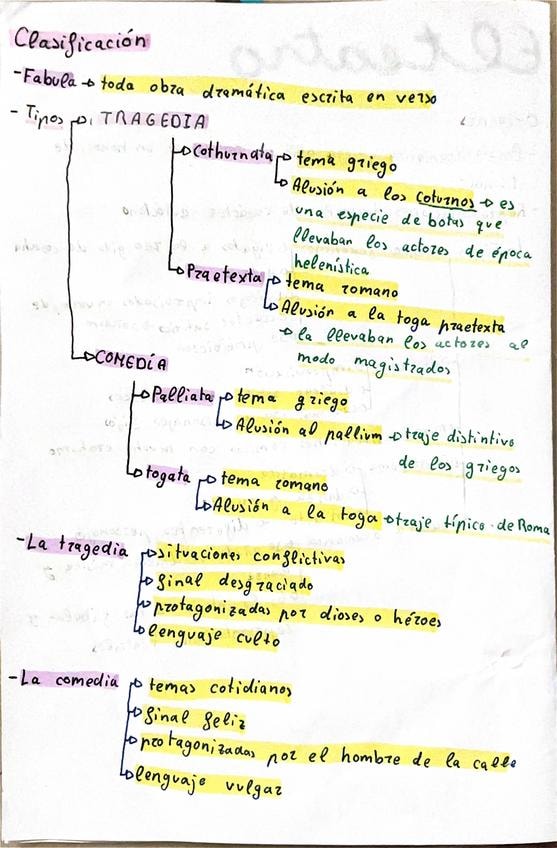 Clasificación
- Fabula → toda obra dramática escrita en verso
- Tipos → TRAGEDIA
→ Cothurnata → tema griego
→ Alusión a los coturnos → es
una especie de botas que
llevaban los actores de época
helenística
→ Praetexta → tema romano
→ Alusión a la toga praetexta
→ la llevaban los actores al
modo magistrados
→ COMEDÍA
→ Palliata → tema griego
→ Alusión al pallium → traje distintivo
de los griegos
→ togata → tema romano
→ Alusión a la toga → traje típico de Roma
- La tragedia → situaciones conflictivas
→ final desgraciado
→ protagonizadas por dioses o héroes
→ lenguaje culto
- La comedia → temas cotidianos
→ final feliz
→ protagonizadas por el hombre de la calle
→ lenguaje vulgar